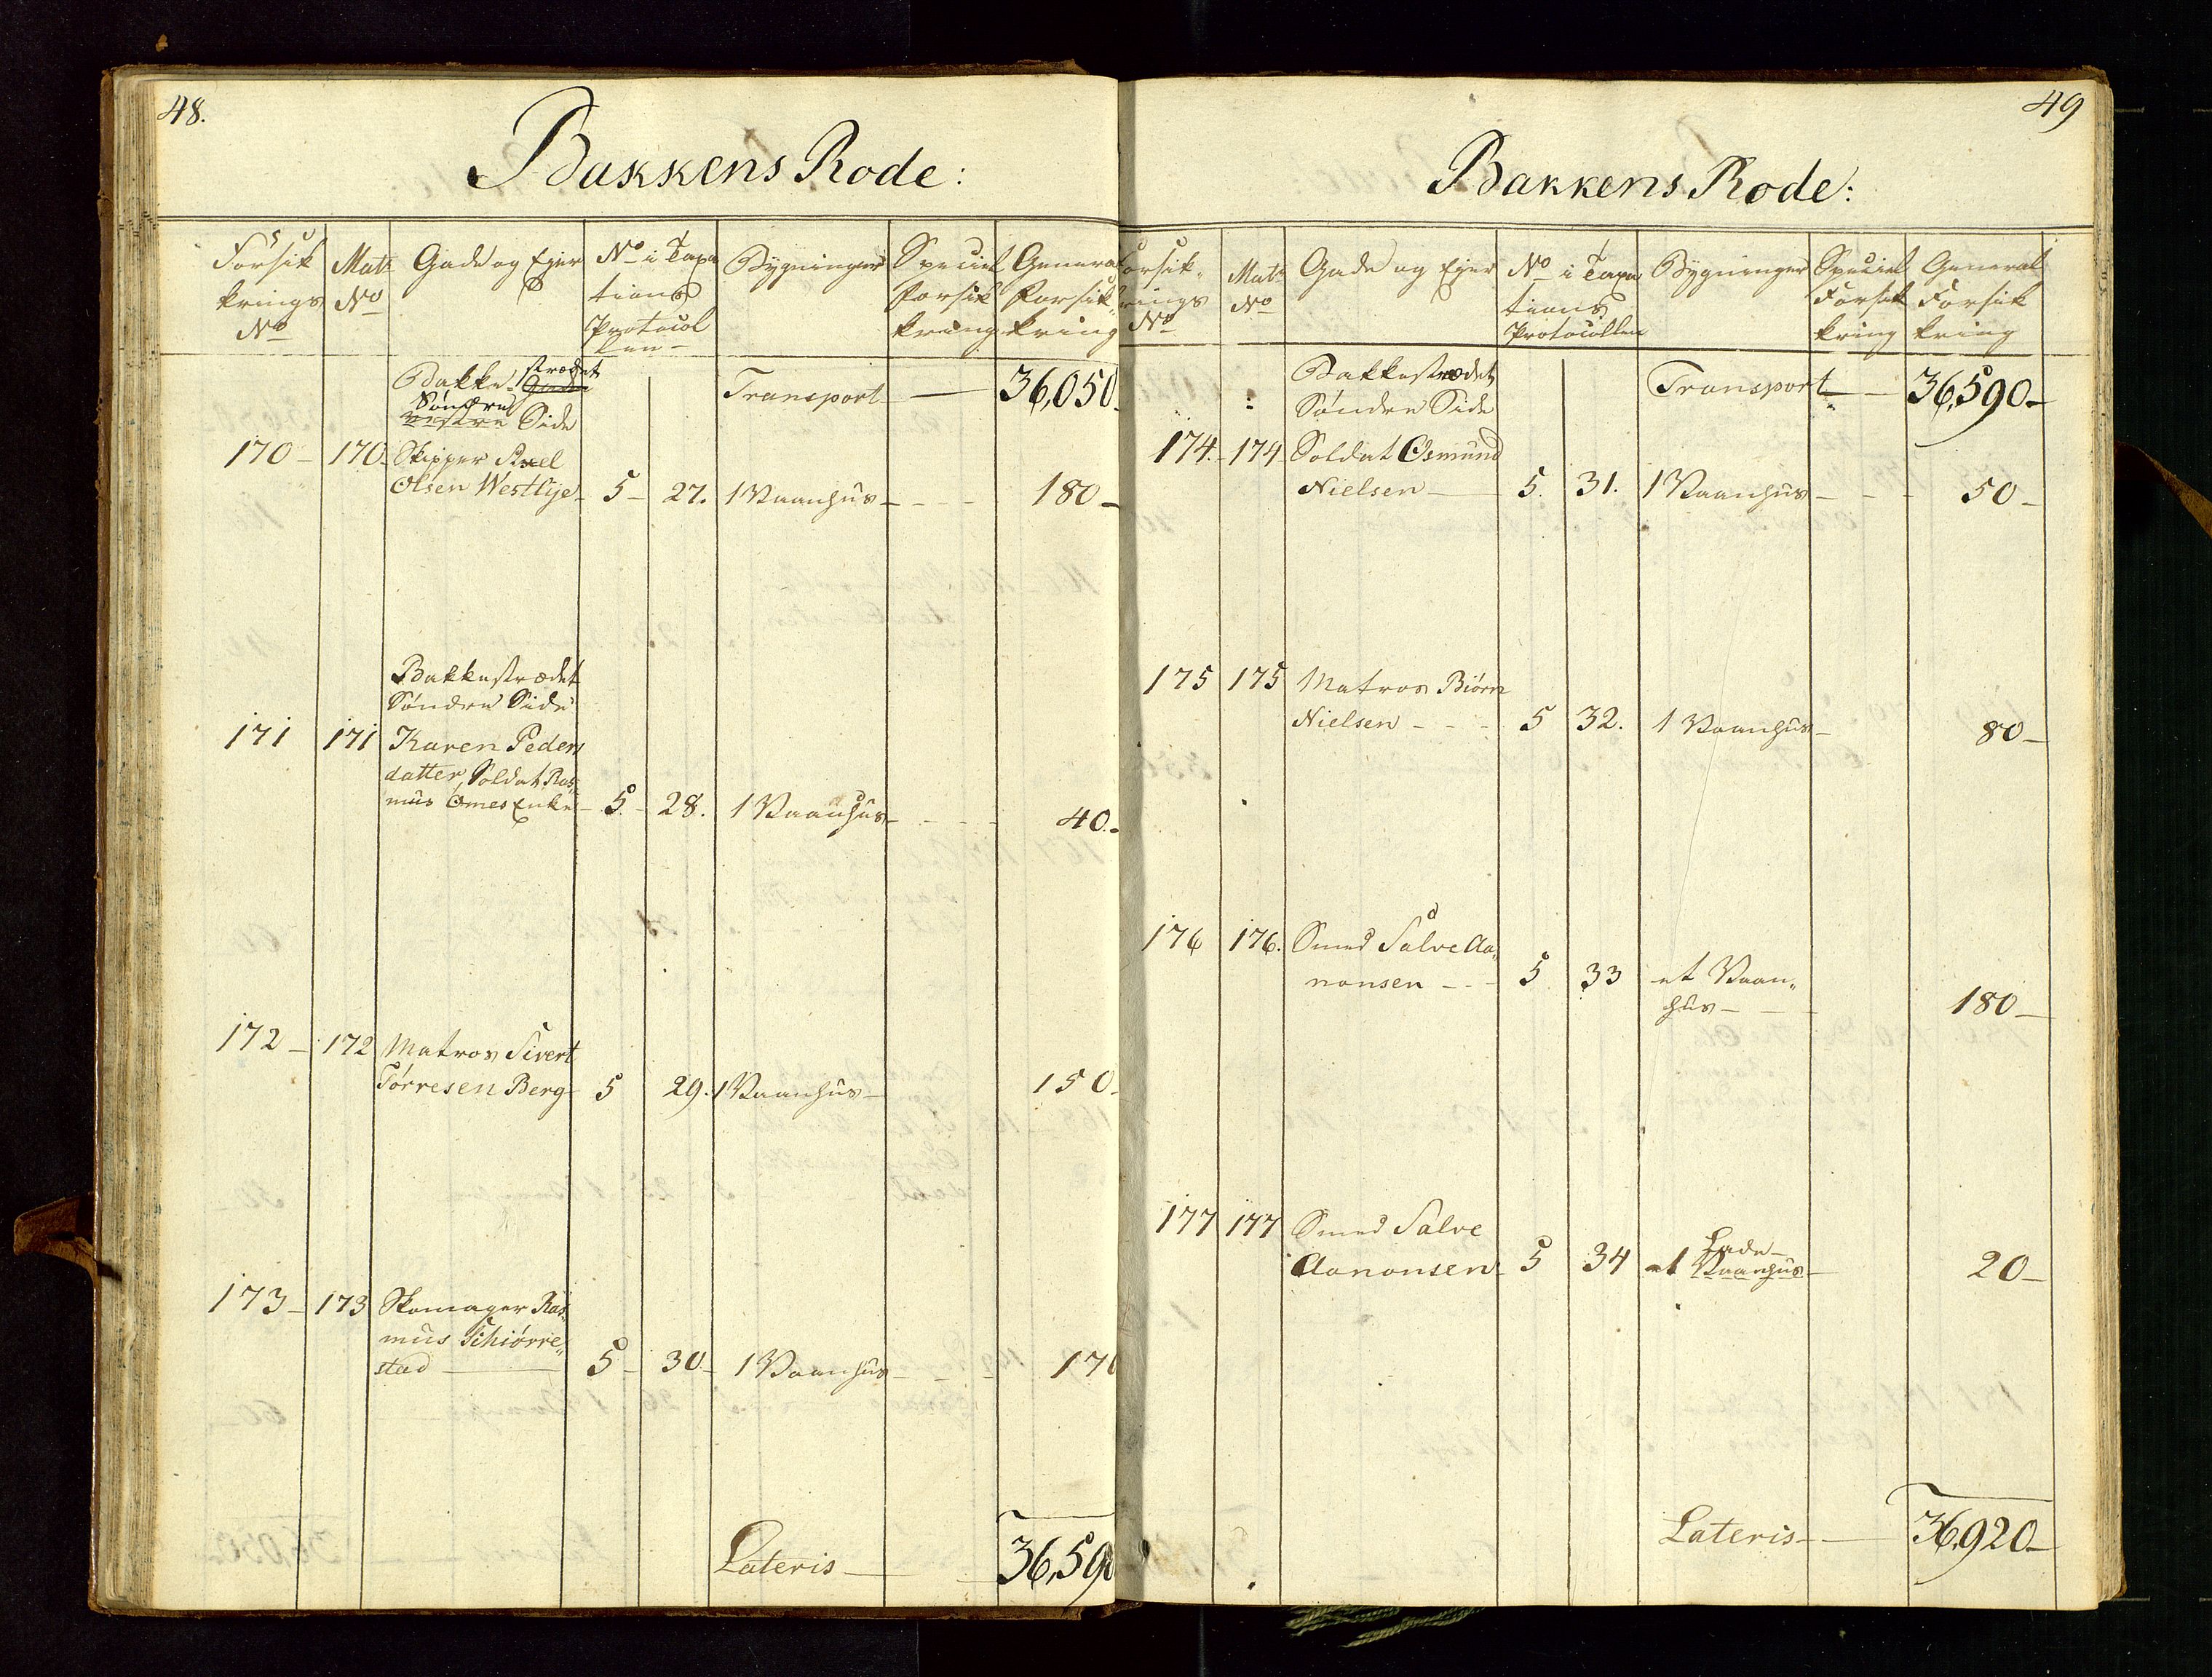 48.
Bakkens Rode:
Forsik
krings
No
Mat:
No
Gade og Ejer
No i Taxa
tions
Protocol
len
Bygninger
Speciel
Forsik
kring
General
Forsik
kring
Bakke strædet
Gaden
Søndre
Vestre Side
Transport 36,050
170 170 Skipper Axel
Olsen Westlye 5 27. 1 Vaanhus 180
Bakkestrædet
Søndre Side
171 171 Karen Peders
datter, Soldat Ras
mus Omes Enke 5 28. 1 Vaanhus 40.
172 172 Matros Sivert
Tørresen Berg 5 29. 1 Vaanhus 150
173 173 Skomager Ras
mus Schiørre„
stad 5 30 1 Vaanhus 170
Lateris 36,590
49
Bakkens Rode:
Forsik„
krings
No
Mat:
No
Gade og Ejer
No i Taxa
tions
Protocollen
Bygninger
Speciel
Forsik
kring
General
Forsik
kring
Bakkestrædet
Søndre Side
Transport 36,590
174. 174 Soldat Osmund
Nielsen 5. 31. 1 Vaanhus 50
175 175 Matros Biørn
Nielsen 5 32. 1 Vaanhus 80
176 176. Smed Salve Aa„
nonsen 5 33 et Vaan„
hus 180
177 177 Smed Salve
Aanonsen 5 34 et Vaanhus 20
Lade
Lateris 36,920